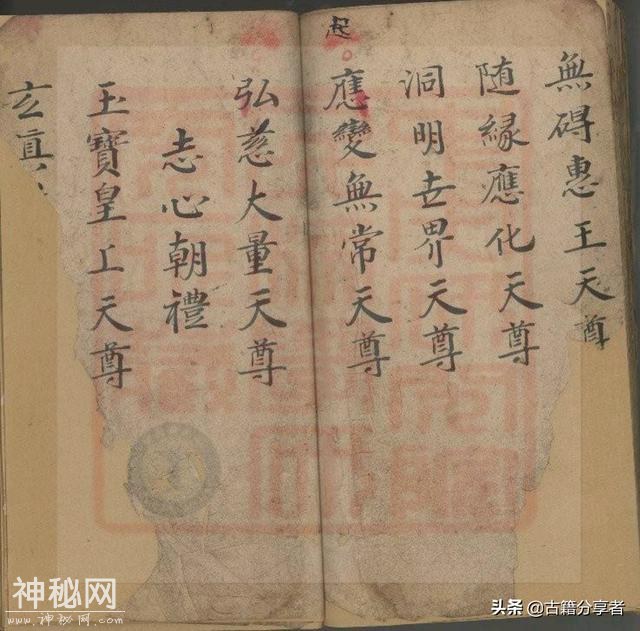 無碍惠王天尊
随緣應化天尊
洞明世界天尊
起
應變無常天尊
弘慈大量天尊
志心朝禮
玉寶皇上天尊
玄真
神秘网
头条 @古籍分享者